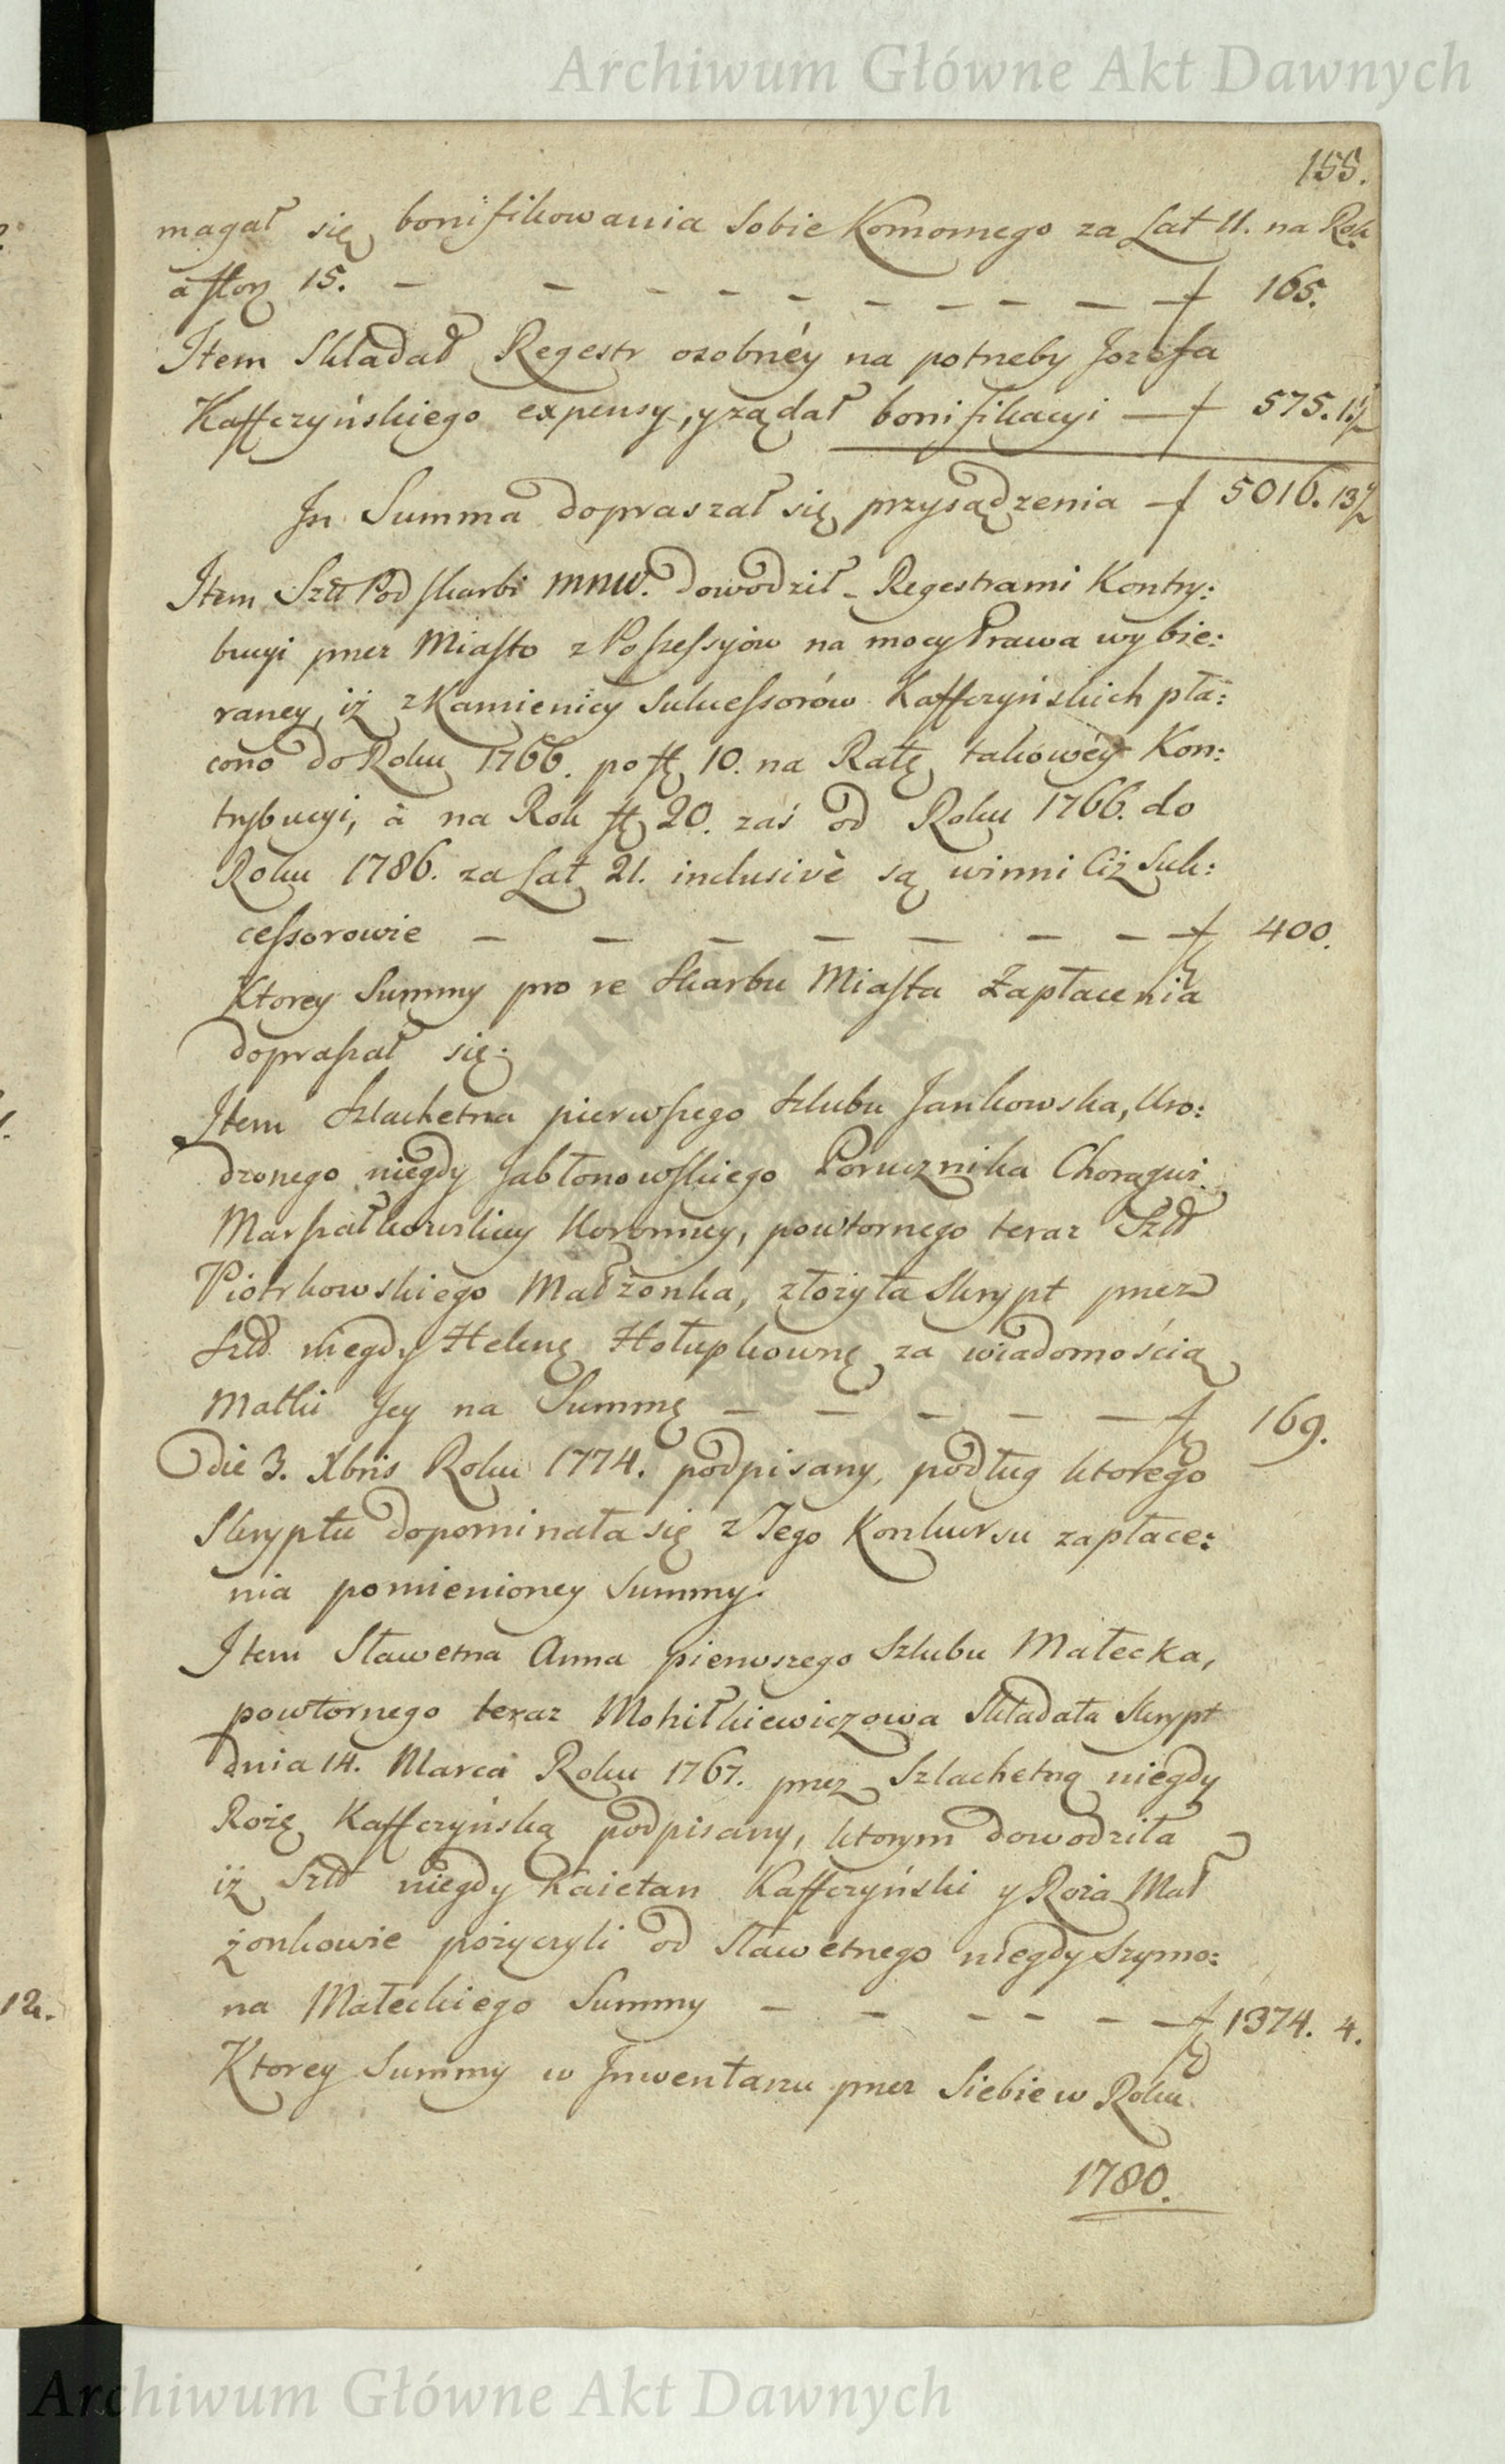 Archiwum Główne Akt Dawnych
155.
magał się bonifikowania Sobie Komornego za Lat 11. na Rok
a flor 15. — — — — — — — — — — f 165.
Item Składał Regestr osobnéy na potrzeby Jozefa
Kaffczyńskiego expensy, y ządał bonifikacyi — f 575. 13
In Summa dopraszał się przysądzenia — f 5016. 13
Item Szltt Podskarbi mnw. dowodził Regestrami Kontry:
bucyi przez Miasto z Possessyiow na mocy Prawa wybie:
raney, iż z Kamienicy Sukcessorów Kaffczyńskich pła:
cono do Roku 1766. po fl 10. na Ratę takowéy Kon:
trybucyi, à na Rok fl 20. zaś od Roku 1766. do
Roku 1786. za Lat 21. inclusivè są winni Ciż Suk:
cessorowie — — — — — — — f 400.
Ktorey Summy pro re Skarbu Miasta Zapłacenia
dopraszał się.
Item Szlachetna pierwszego Szlubu Jankowska, Uro:
dzonego niegdy Jabłonowskiego Porucznika Chorągwi
Marszałkowskiey Koronney, powtornego teraz Szltt
Piotrkowskiego Małżonka, złożyła Skrypt przez
Szltt niegdy Helenę Hołupkownę za wiadomością
Matki Jey na Summę — — — — — f 169.
die 3. Xbris Roku 1774. podpisany, podług ktorego
Skryptu dopominała się z Tego Konkursu zapłace:
nia pomienioney Summy.
Item Sławetna Anna pierwszego Szlubu Małecka,
powtornego teraz Mohiłkiewiczowa Składała Skrypt
dnia 14. Marca Roku 1767. przez Szlachetną niegdy
Rożę Kaffczyńską podpisany, ktorym dowodziła
iż Szltt niegdy Kaietan Kaffczyński y Roża Mał
żonkowie pożyczyli od Sławetnego niegdy Szymo:
na Małeckiego Summy — — — — — f 1374. 4.
12.
Ktorey Summy w Inwentarzu przez Siebie w Roku
1780.
Archiwum Główne Akt Dawnych